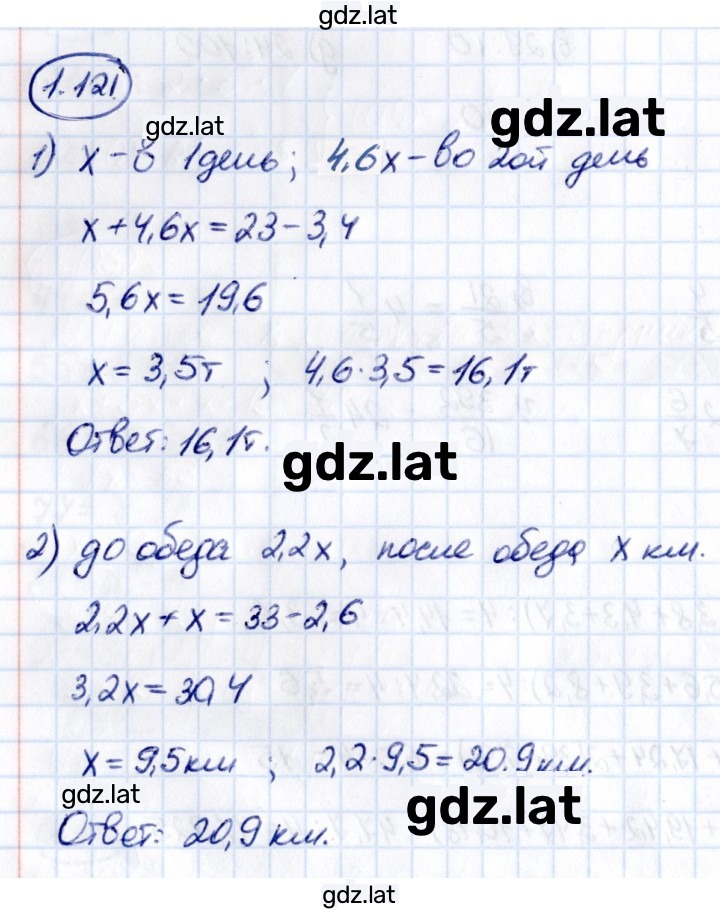 gdz.lat
1.121
gdz.lat
gdz.lat
1) x – в 1 день; 4,6x – во 2ой день
x + 4,6x = 23 – 3,4
5,6x = 19,6
x = 3,5т ; 4,6·3,5 = 16,1т
Ответ: 16,1т.
gdz.lat
2) до обеда 2,2x, после обеда x км.
2,2x + x = 33 – 2,6
3,2x = 30,4
x = 9,5км ; 2,2·9,5 = 20.9км.
gdz.lat
gdz.lat
Ответ: 20,9 км.
gdz.lat